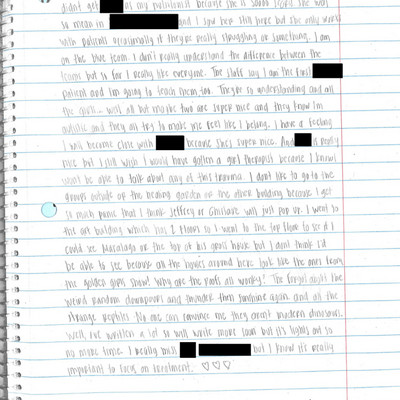 didn't get as my nutritionist because she is soooo nice. She was
so mean in and I saw her still here but she only works
with patients occasionally if they're really struggling or something. I am
on the blue team. I don't really understand the difference between the
teams but so far I really like everyone. The staff say I am the first
patient and I'm going to teach them too. They're so understanding and all
the girls... well all but maybe two are super nice and they know I'm
autistic and they all try to make me feel like I belong. I have a feeling
I will become close with because she's super nice. And is really
nice but I still wish I would have gotten a girl therapist because I know I
wont be able to talk about any of this trauma. I dont like to go to the
groups outside or the healing garden or the other building because I get
so much panic that I think Jeffrey or Ghislaine will just pop up. I went to
the art building which has 2 floors so I went to the top floor to see if I
could see Maralago or the top of his gross house but I dont think I'd
be able to see because all the houses around here look like the ones from
the golden girls show! Why are the roofs all wavy? The forgot about the
weird random downpours and thunder then sunshine again and all the
strange reptiles No one can convince me they aren't modern dinosaurs.
Well, I've written a lot so will write more soon but it's lights out so
no more time. I really miss but I know it's really
important to focus on treatment. ♡♡♡